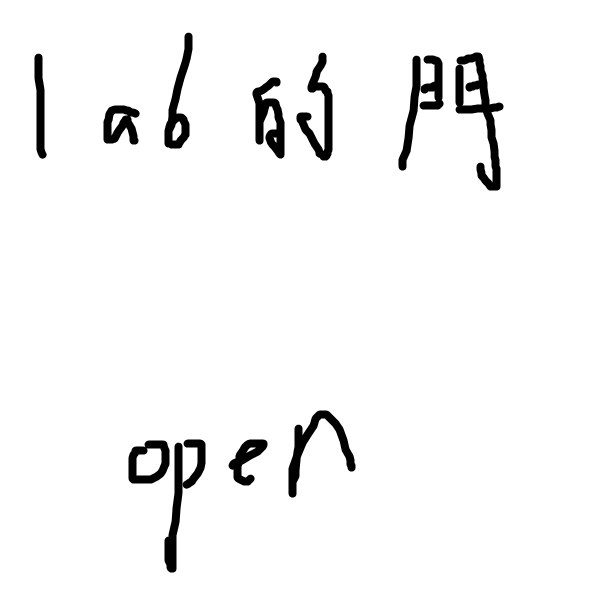 lab的門
open